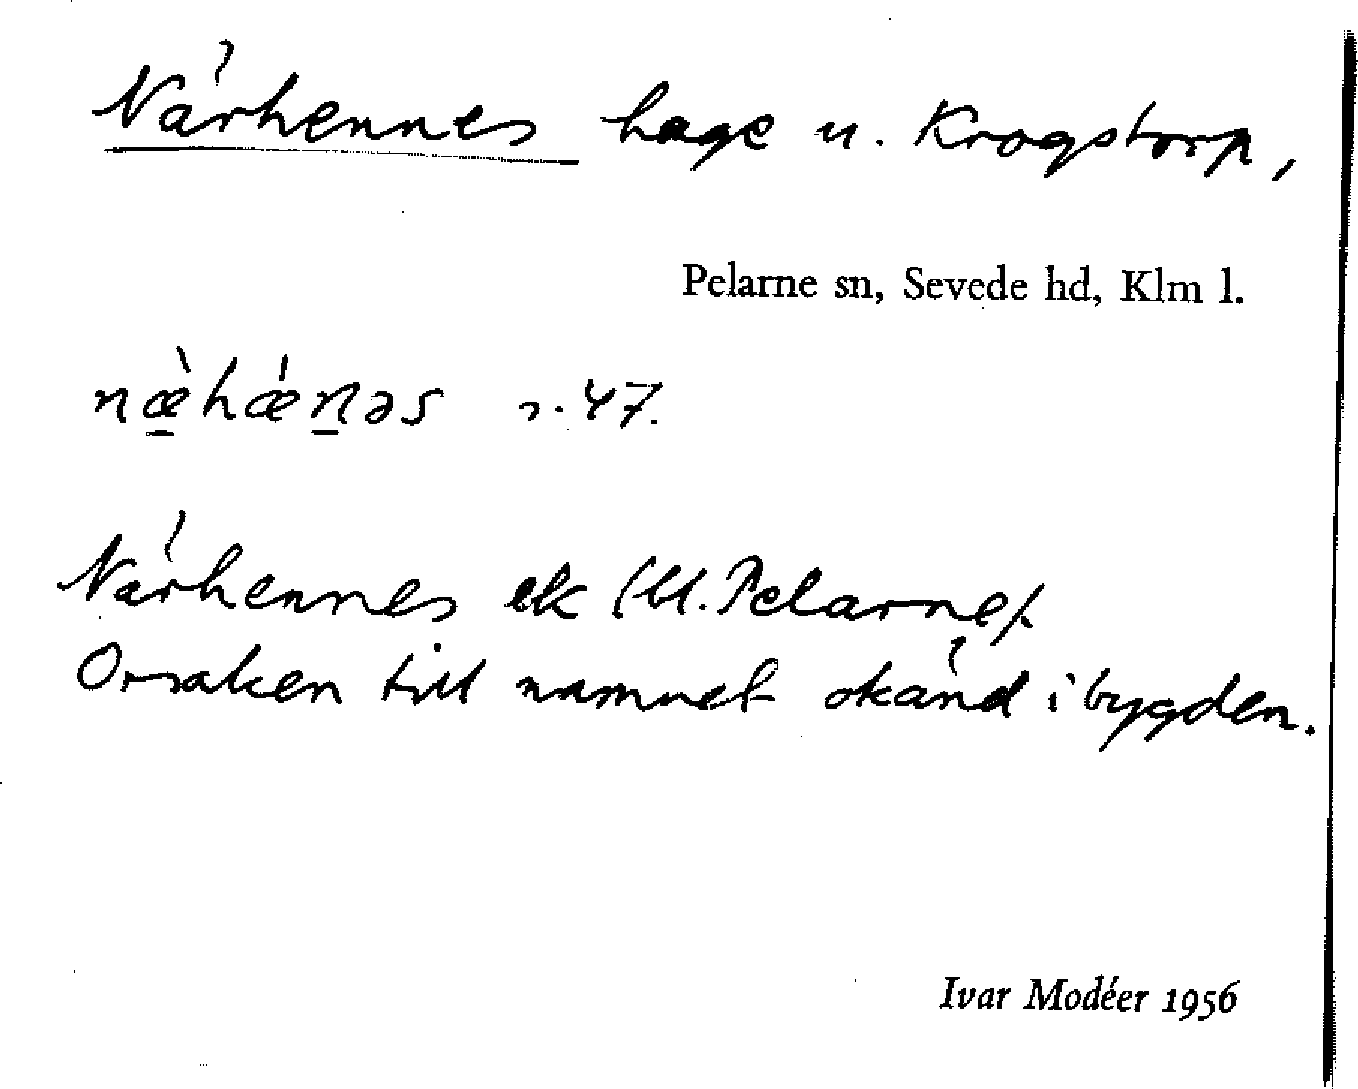 Närhennes hage u. Krogstorp,
Pelarne sn, Sevede hd, Klm l.
næ̀hǽnəs s. 47.
Närhennes ek (U. Pelarne).
Orsaken till namnet okänd i bygden.
Ivar Modéer 1956